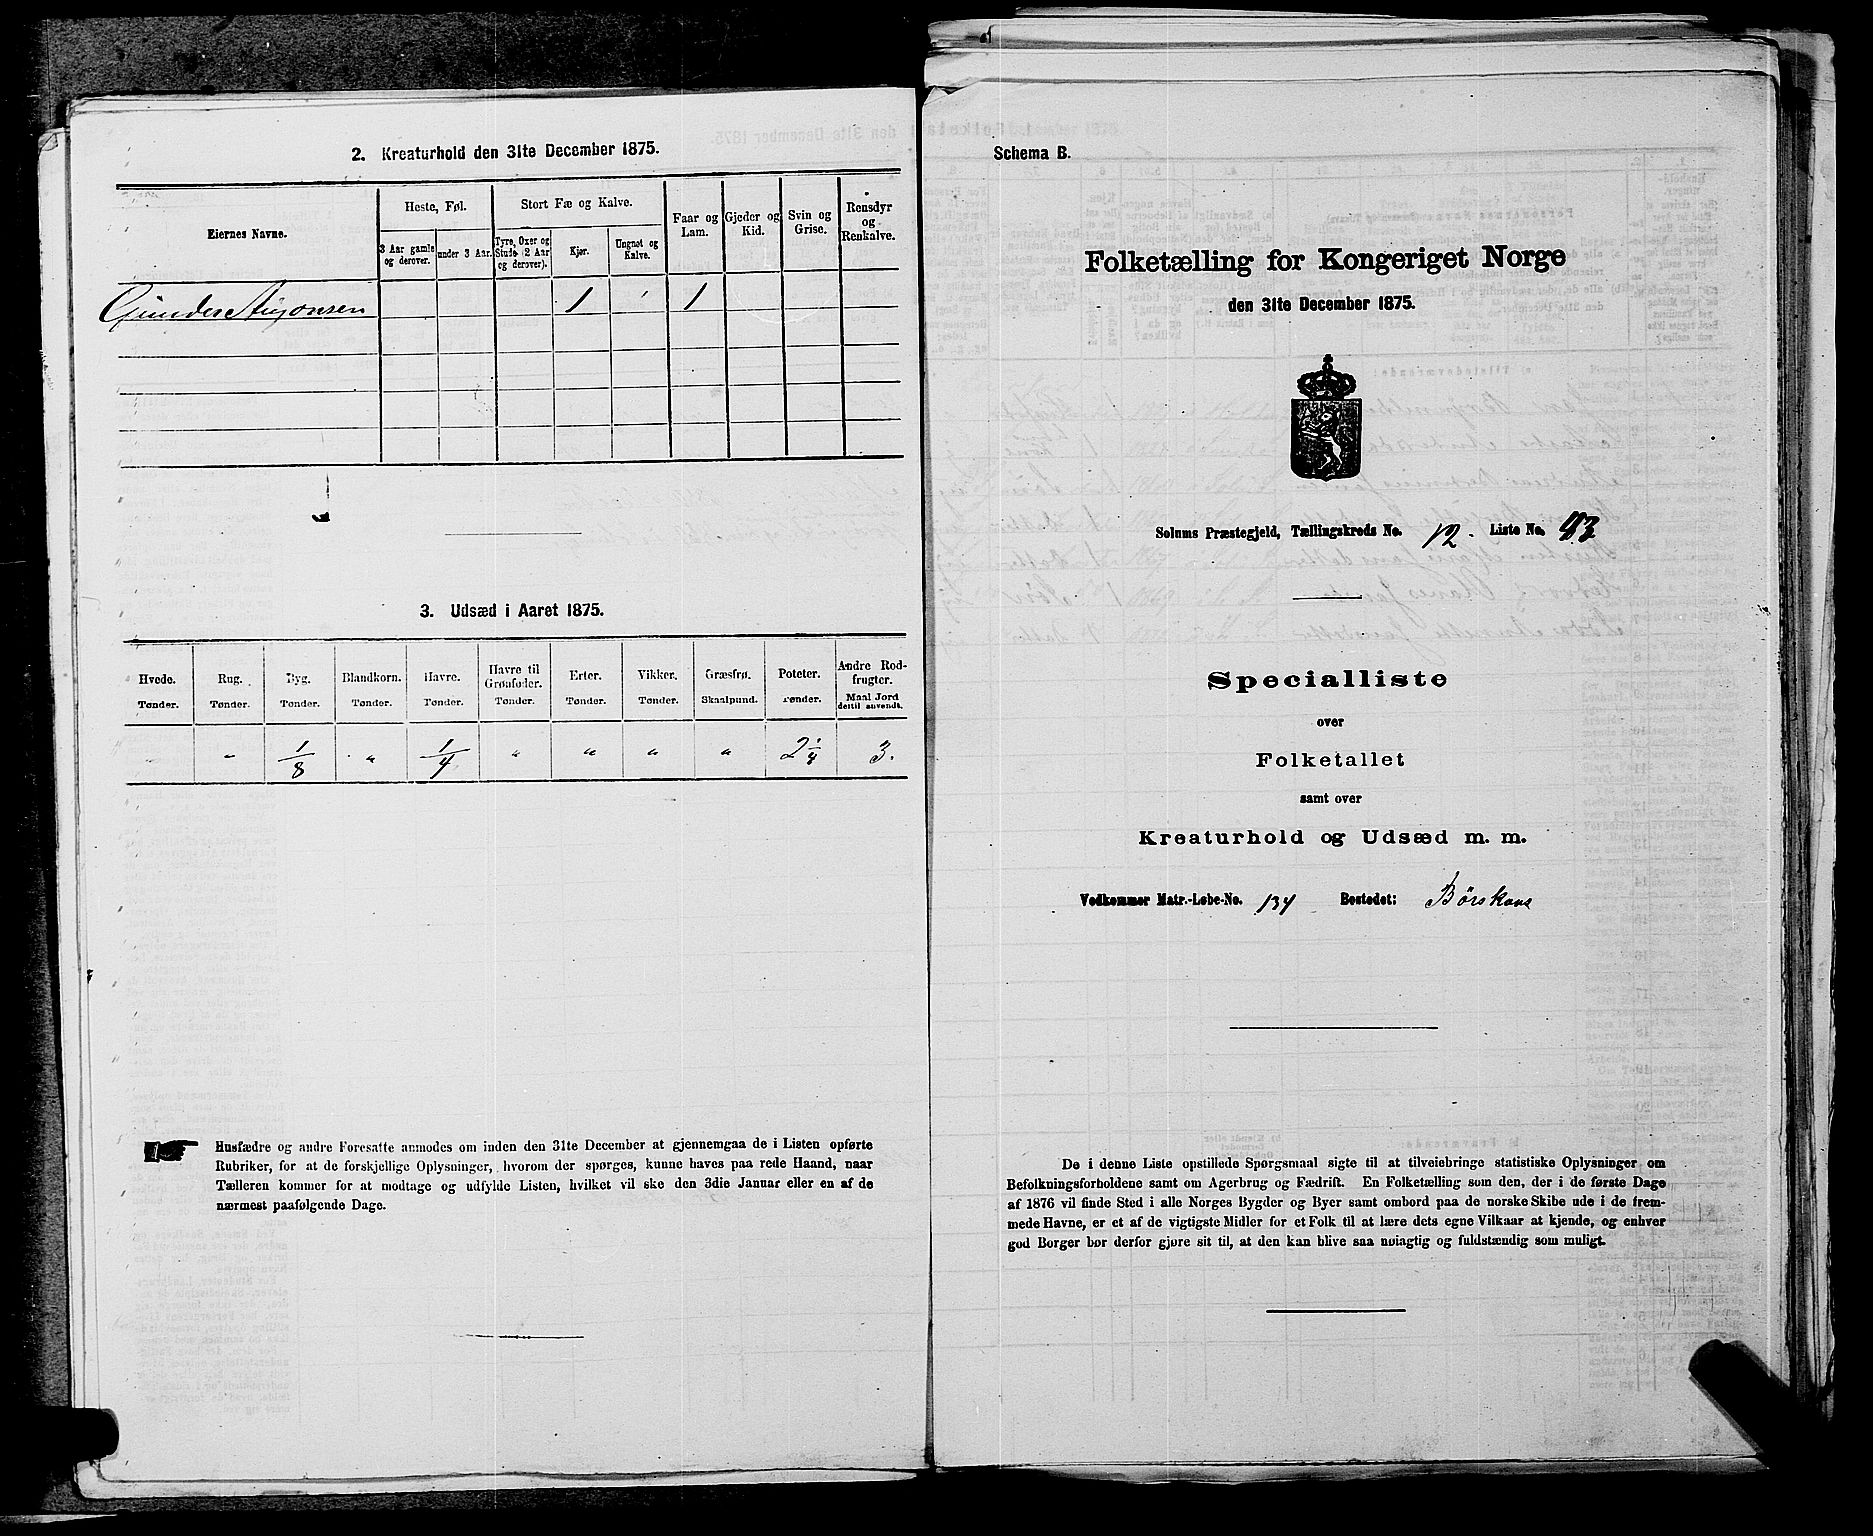 2. Kreaturhold den 31te December 1875.
Eiernes Navne.
Heste, Føl.
Stort Fæ og Kalve.
Faar og Lam.
Gjeder og Kid.
Svin og Grise.
Rensdyr og Renkalve.
3 Aar gamle og derover.
under 3 Aar.
Tyre, Oxer og Stude (2 Aar og derover).
Kjør.
Ungnøt og Kalve.
Gunder 1 1
3. Udsæd i Aaret 1875.
Hvede. Rug. Byg. Blandkorn. Havre. Havre til Grønfoder. Erter. Vikker. Græsfrø. Poteter. Andre Rodfrugter.
Tønder. Tønder. Tønder. Tønder. Tønder. Tønder. Tønder. Tønder. Skaalpund. Tønder. Maal Jord dertil anvendt.
" 1/8 " 1/4 " " " " 2 1/4 3.
Husfædre og andre Foresatte anmodes om inden den 31te December at gjennemgaa de i Listen opførte
Rubriker, for at de forskjellige Oplysninger, hvorom der spørges, kunne haves paa rede Haand, naar
Tælleren kommer for at modtage og udfylde Listen, hvilket vil ske den 3die Januar eller en af de
nærmest paafølgende Dage.
Schema B.
Folketælling for Kongeriget Norge
den 31te December 1875.
Solums Præstegjeld, Tællingskreds No. 12. Liste No. 83
Specialliste
over
Folketallet
samt over
Kreaturhold og Udsæd m. m.
Vedkommer Matr.-Løbe-No. 134 Bostedet: Børskaas
De i denne Liste opstillede Spørgsmaal sigte til at tilveiebringe statistiske Oplysninger om
Befolkningsforholdene samt om Agerbrug og Fædrift. En Folketælling som den, der i de første Dage
af 1876 vil finde Sted i alle Norges Bygder og Byer samt ombord paa de norske Skibe ude i de frem-
mede Havne, er et af de vigtigste Midler for et Folk til at lære dets egne Vilkaar at kjende, og enhver
god Borger bør derfor gjøre sit til, at den kan blive saa nøiagtig og fuldstændig som muligt.